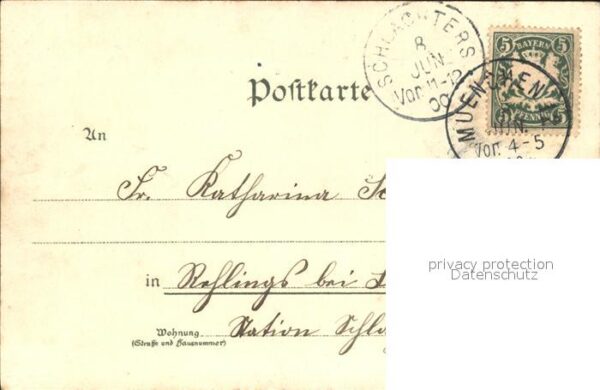 SCHLACHTERS
8
JUN.
Vor. 11-12
00
5 BAYERN 5
5 PFENNIG 5
MUENCHEN
JUN.
Vor. 4-5
Postkarte
An
Fr. Katharina
privacy protection
Datenschutz
in Rehlings bei
Wohnung
(Straße und Hausnummer)
Station Schla